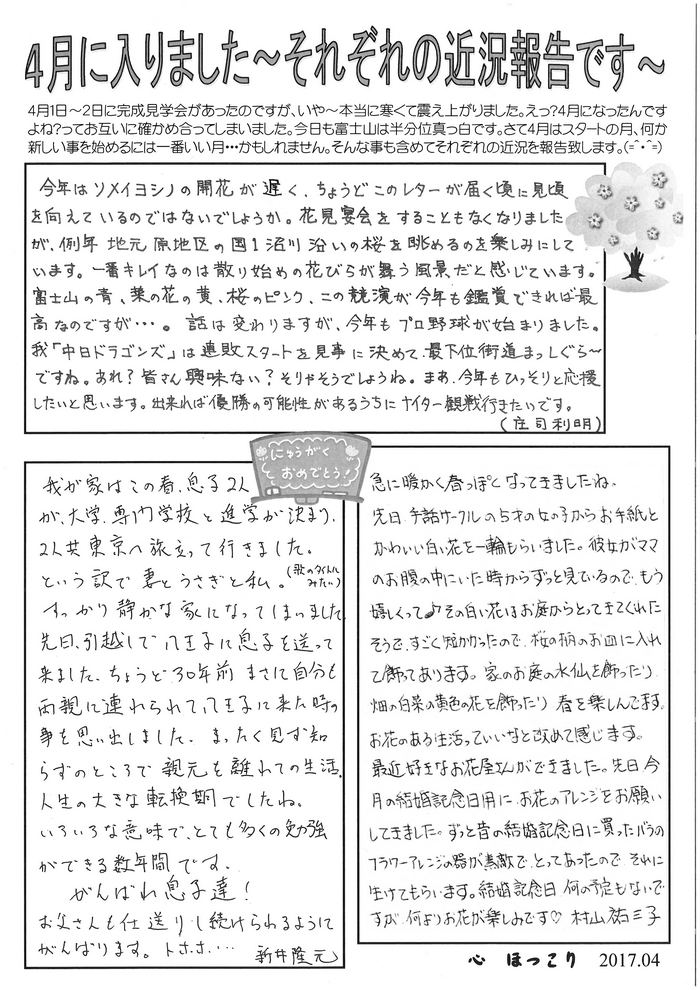 4月に入りました～それぞれの近況報告です～
4月1日～2日に完成見学会があったのですが、いや～本当に寒くて震え上がりました。えっ?4月になったんです
よね?ってお互いに確かめ合ってしまいました。今日も富士山は半分位真っ白です。さて4月はスタートの月、何か
新しい事を始めるには一番いい月・・・かもしれません。そんな事も含めてそれぞれの近況を報告致します。(=^・^=)
今年はソメイヨシノの開花が遅く、ちょうどこのレターが届く頃に見頃
を向えているのではないでしょうか。花見宴会をすることもなくなりました
が、例年 地元 原地区の国1沼川沿いの桜を眺めるのを楽しみにして
います。一番キレイなのは散り始めの花びらが舞う風景だと感じています。
富士山の青、菜の花の黄、桜のピンク、この競演が今年も鑑賞できれば最
高なのですが・・・。話は変わりますが、今年もプロ野球が始まりました。
我「中日ドラゴンズ」は連敗スタートを見事に決めて、最下位街道まっしぐら～
ですね。あれ?皆さん興味ない?そりゃそうでしょうね。まあ、今年もひっそりと応援
したいと思います。出来れば優勝の可能性があるうちにナイター観戦行きたいです。
(庄司利明)
にゅうがく
おめでとう!
我が家はこの春、息子2人
が、大学、専門学校と進学が決まり、
2人共東京へ旅立って行きました。
という訳で妻とうさぎと私。(歌のタイトルみたい)
すっかり静かな家になってしまいました。
先日、引越しで八王子に息子を送って
来ました。ちょうど30年前 まさに自分も
両親に連れられて八王子に来た時の
事を思い出しました。まったく見ず知
らずのところで親元を離れての生活、
人生の大きな転換期でしたね。
いろいろな意味で、とても多くの勉強
ができる数年間です。
がんばれ息子達!
お父さんも仕送りし続けられるように
がんばります。トホホ・・・ 新井隆元
急に暖かく春っぽくなってきましたね。
先日、手話サークルの5才の女の子からお手紙と
かわいい白い花を一輪もらいました。彼女がママ
のお腹の中にいた時からずっと見ているので、もう
嬉しくって♪その白い花はお庭からとってきてくれた
そうで、すごく短かかったので、桜の柄のお皿に入れ
て飾ってあります。家のお庭の水仙を飾ったり、
畑の白菜の黄色の花を飾ったり 春を楽しんでます。
お花のある生活っていいなと改めて感じます。
最近好きなお花屋さんができました。先日、今
月の結婚記念日用に、お花のアレンジをお願い
してきました。ずっと昔の結婚記念日に買ったバラの
フラワーアレンジの器が素敵で、とってあったので それに
生けてもらいます。結婚記念日 何の予定もないで
すが、何よりお花が楽しみです♡ 村山祐三子
心 ほっこり 2017.04